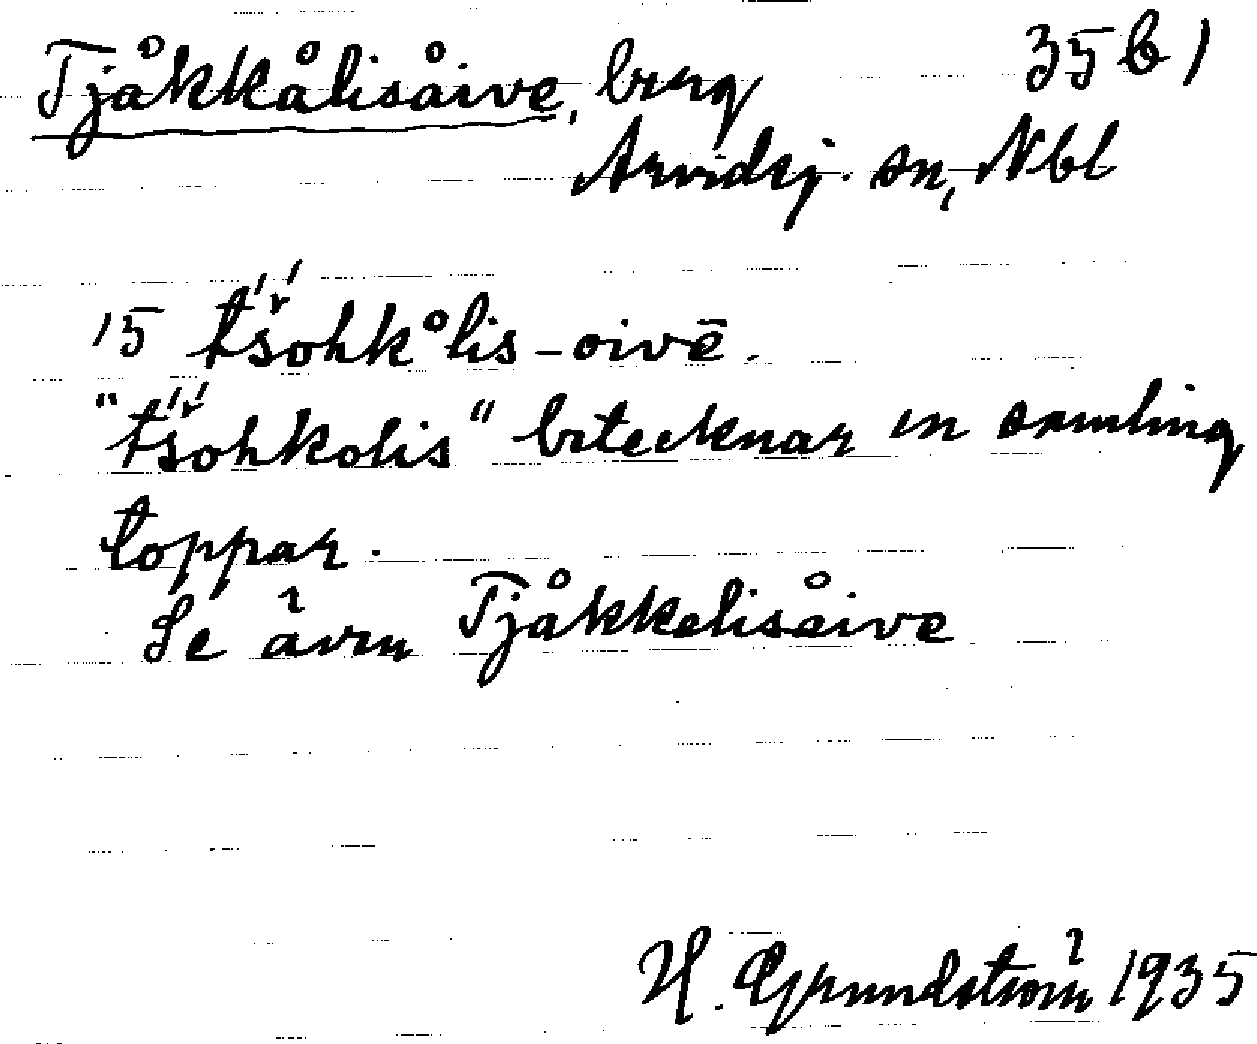 Tjåkkålisåive, berg 35 b 1
Arvidsj. sn, Nbl
15 t̕š̕ohkålis-oivē.
"t̕š̕ohkolis" betecknar en samling
toppar.
Se även Tjåkkelisåive
H. Grundström 1935